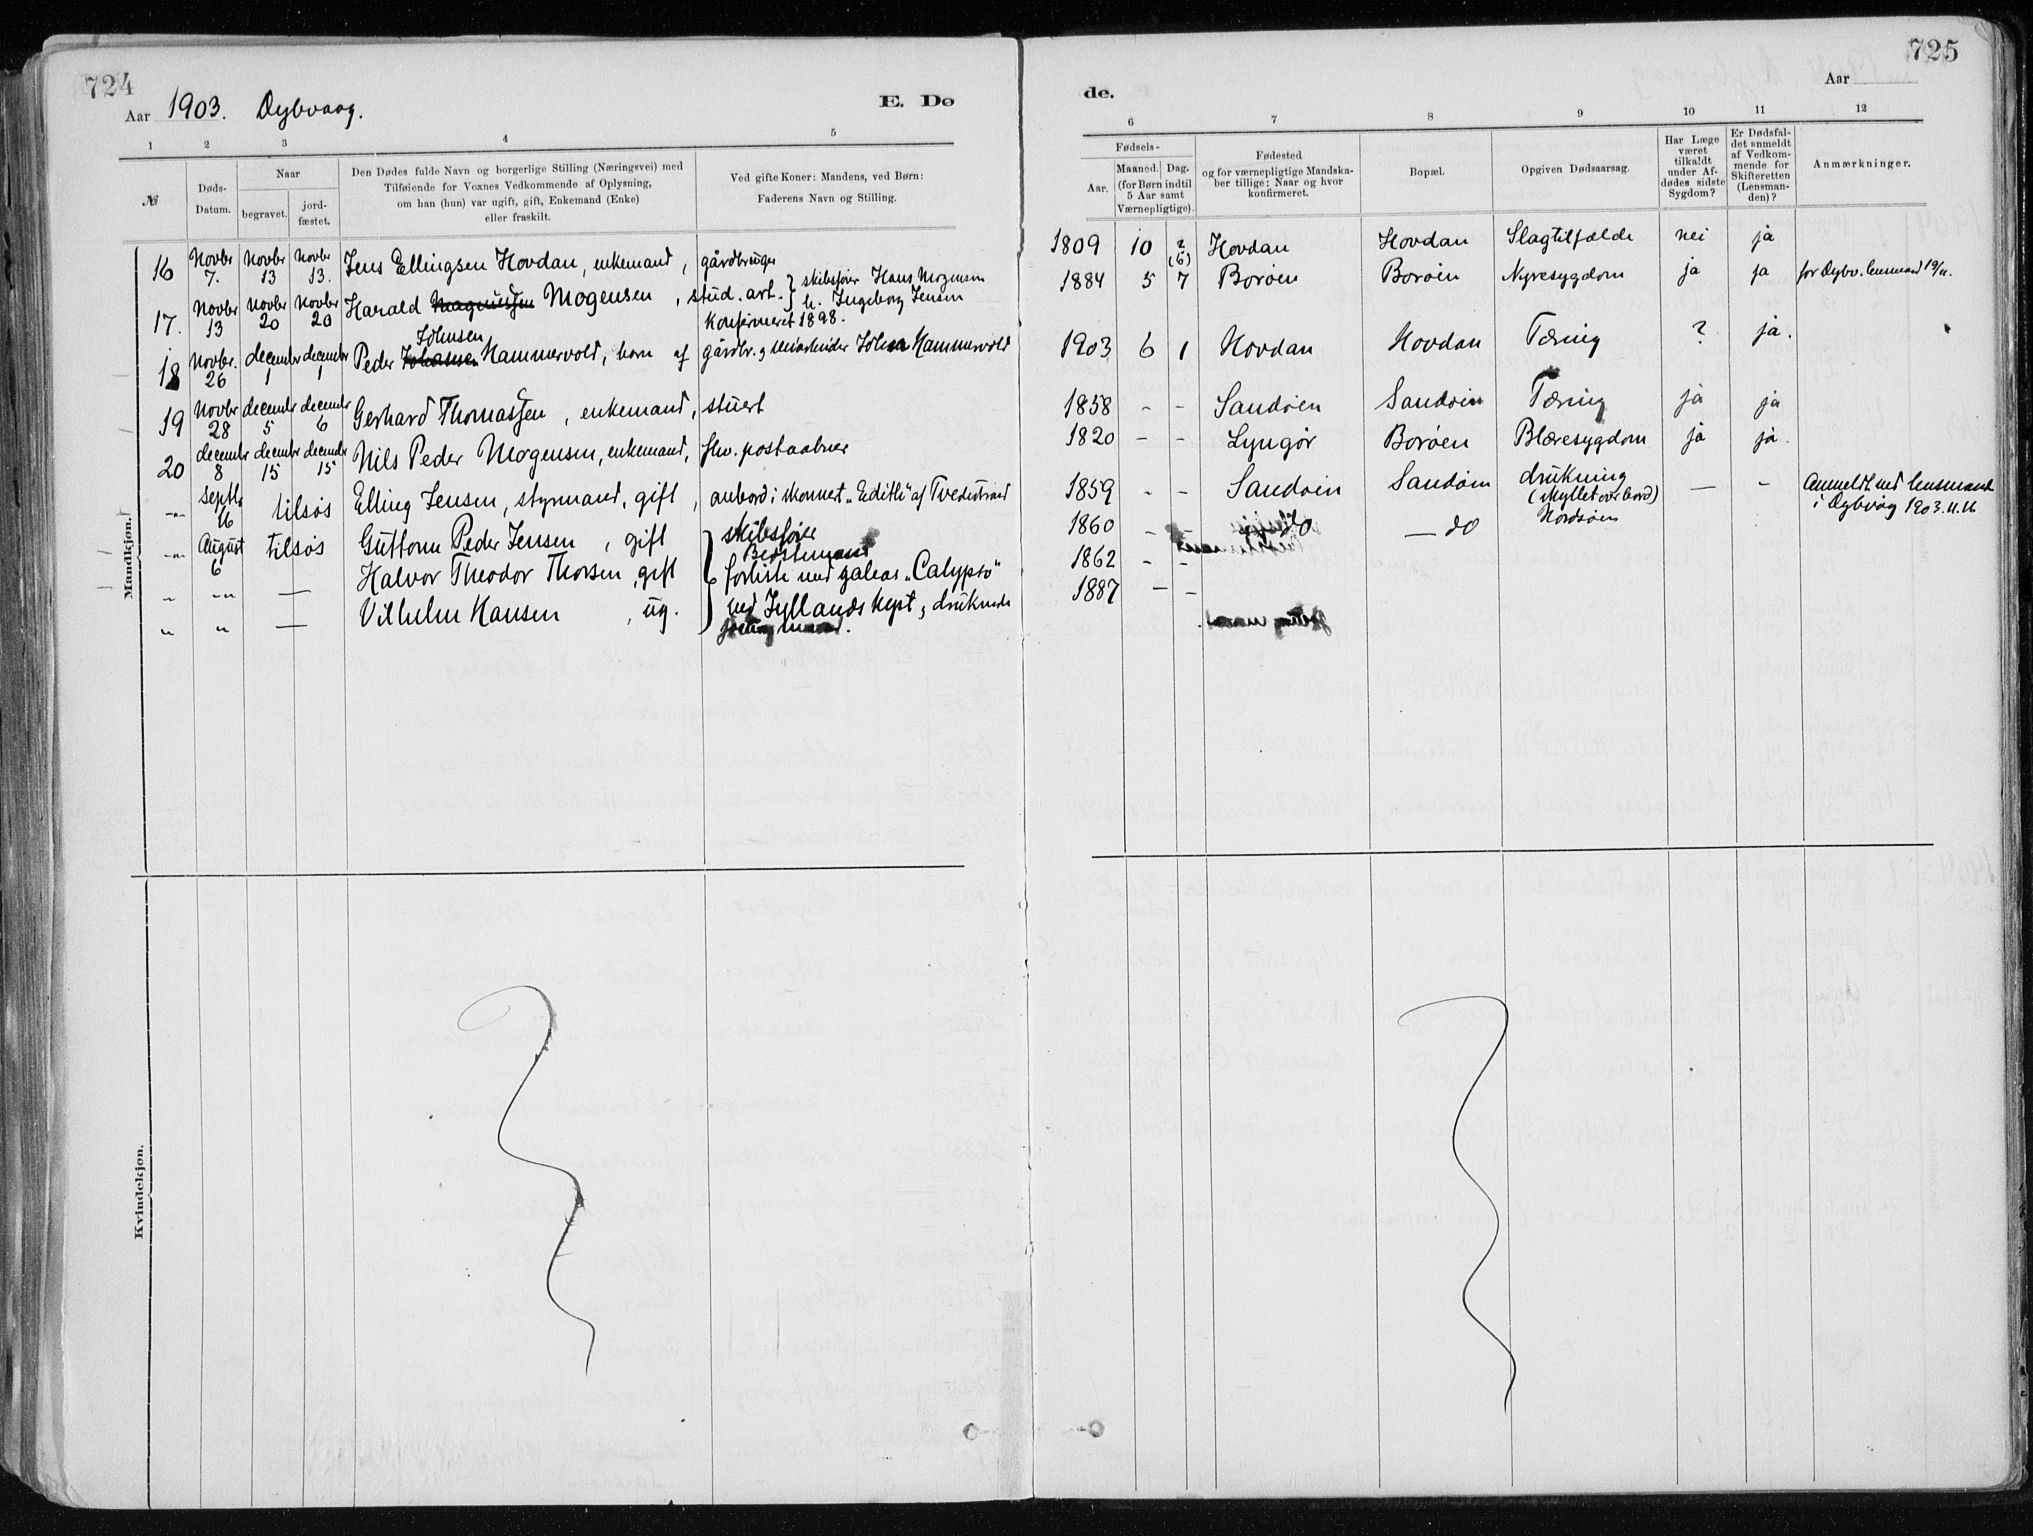 724
Aar 1903. Dybvaag.
E. Dø
1 2 3 4 5
№
Døds-Datum.
Naar
begravet.
jord-fæstet.
Den Dødes fulde Navn og borgerlige Stilling (Næringsvei) med
Tilføiende for Voxnes Vedkommende af Oplysning,
om han (hun) var ugift, gift, Enkemand (Enke)
eller fraskilt.
Ved gifte Koner: Mandens, ved Børn:
Faderens Navn og Stilling.
Mandkjøn.
16 Novbr 7. Novbr 13 Novbr 13. Jens Ellingsen Hovdan, enkemand, gårdbruger
17. Novbr 13 Novbr 20 Novbr 20 Harald Mogensen, stud. art. } skibsfører Hans Mogensen
h. Ingeborg Jensen
Konfirmeret 1898.
Johnsen
18 Novbr. 26 decembr 1 decembr 1 Peder Johansen Hammervold, barn af gårdbr. og John Hammervold
19 Novbr 28 decembr 5 decembr 6 Gerhard Thomassen, enkemand, stuert
20 decembr 8 decembr 15 decembr 15 Nils Peder Mogensen, enkemand, fhv. postaabner
-"- Septbr 16 tilsøs Elling Jensen, styrmand, gift, ombord i skonnert "Edith" af Tvedestrand
-"- August 6 tilsøs Guttorm Peder Jensen, gift } skibsfører
Bedstemand
" -"- — Halvor Theodor Thorsen, gift forliste med galeas "Calypso"
" " — Vilhelm Hansen, ug. ved Jyllands kyst, druknede
Kvindekjøn.
725
Aar
de.
6 7 8 9 10 11 12
Fødsels-
Aar.
Maaned. Dag.
(for Børn indtil
5 Aar samt
Værnepligtige).
Fødested
og for værnepligtige Mandska-
ber tillige: Naar og hvor
konfirmeret.
Bopæl.
Opgiven Dødsaarsag.
Har Læge
været
tilkaldt
under Af-
dødes sidste
Sygdom?
Er Dødsfal-
det anmeldt
af Vedkom-
mende for
Skifteretten
(Lensman-
den)?
Anmærkninger.
1809 10 ? (6) Hovdan Hovdan Slagtilfælde nei ja
1884 5 7 Borøen Borøen Nyresygdom ja ja for Dybv. lensmand 19/11.
1903 6 1 Hovdan Hovdan Tæring ? ja.
1858 - - Sandøen Sandøen Tæring ja ja
1820 - - Lyngør Borøen Blæresygdom ja ja.
1859 - - Sandøen Sandøen drukning — - Anmeldt ved lensmand
(skyllet over bord) i Dybvåg 1903.11.16
1860 - - do — do Nordsøen
1862 - -
1887 - -